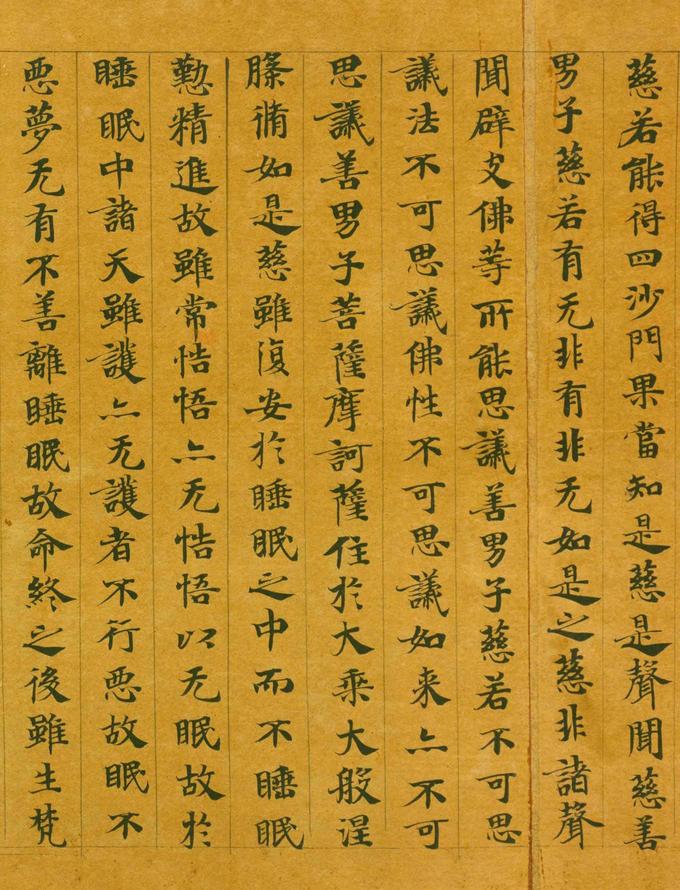 慈若能得四沙門果當知是慈是聲聞慈善
男子慈若有无非有非无如是之慈非諸聲
聞辟支佛等所能思議善男子慈若不可思
議法不可思議佛性不可思議如来亦不可
思議善男子菩薩摩訶薩住於大乘大般涅
槃脩如是慈雖復安於睡眠之中而不睡眠
懃精進故雖常悎悟亦无悎悟以无眠故於
睡眠中諸天雖護亦无護者不行惡故眠不
惡夢无有不善離睡眠故命終之後雖生梵